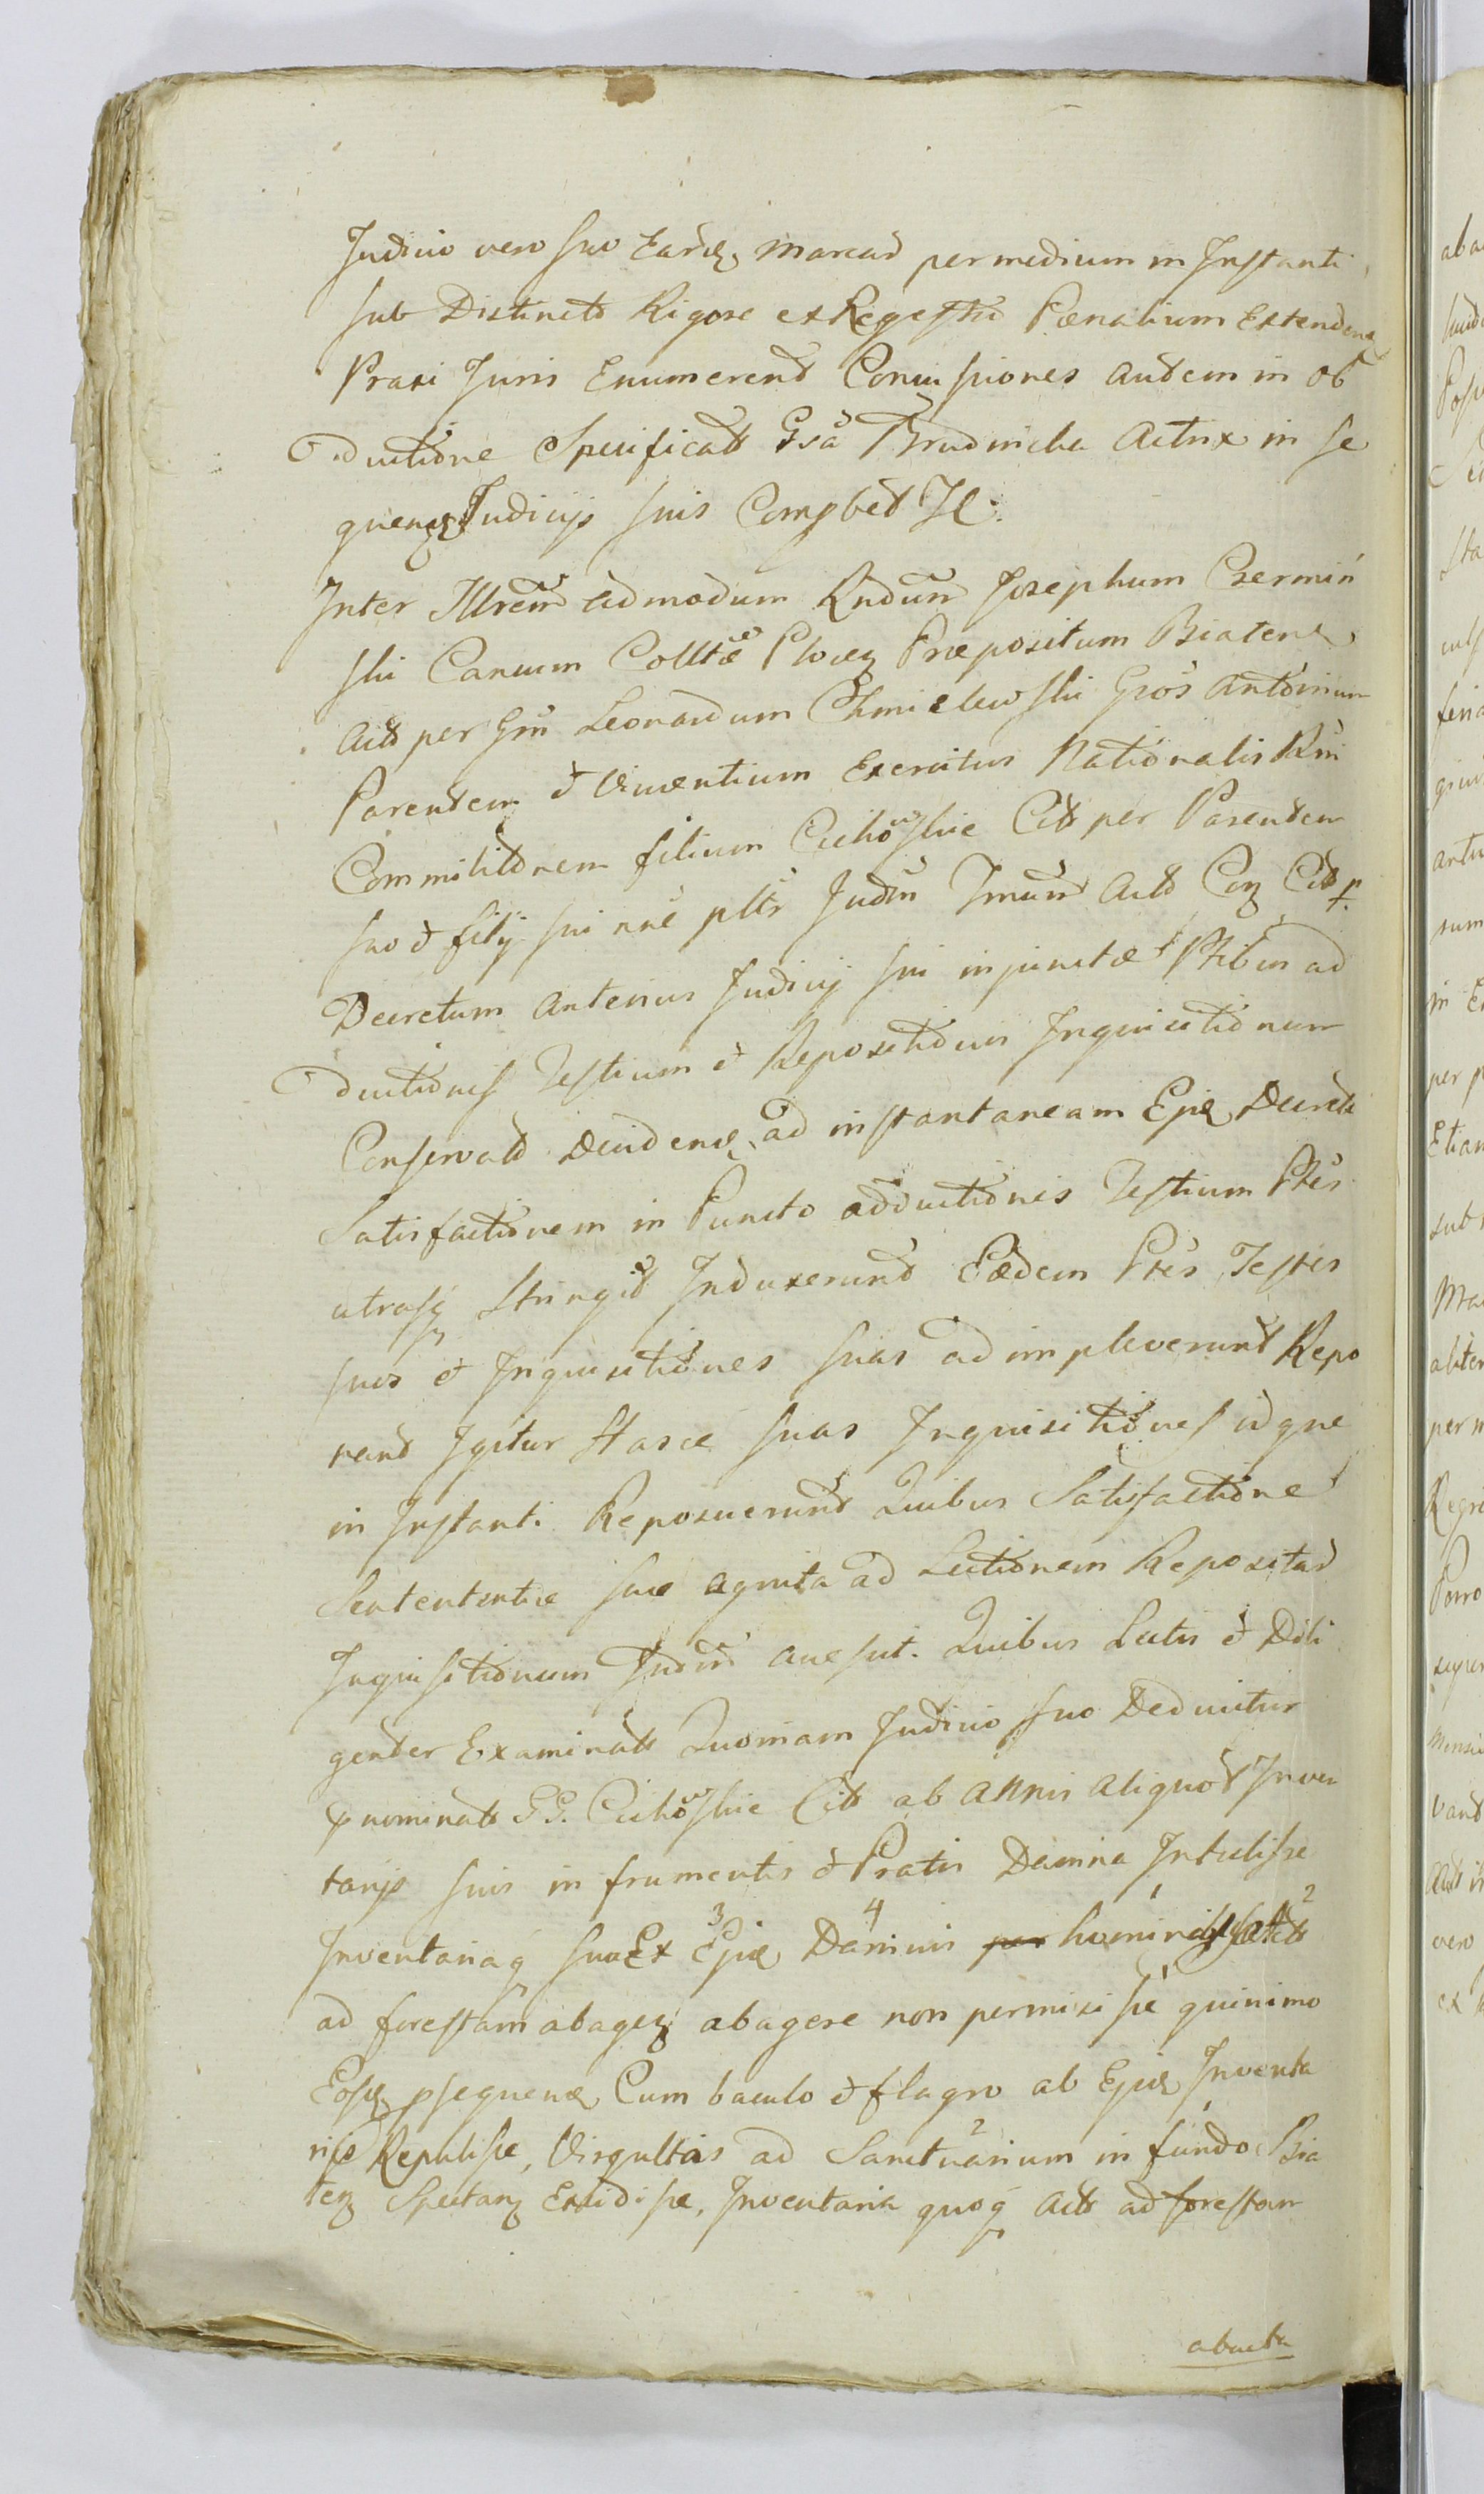 Judicio vero suo Eard marcad per medium in Instanti
sub Districto Rigore ex Regestro Poenalium Extenden
Praxi Juris Enumerend Convulsiones autem in ob
ductione Specificatt Gsa Brudnicka Actrix in se
quen Judicijs suis Compbet Il:
Inter Illrem admodum Rndum Josephum Czermiń
ski Cancum Colltae Plocen Praepositum Bialen
Act per Gm Leonardum Chmielewski Gsos Antonium
Parentem & Vincentium Exercitus Nationalis Rni
Commilitonem filium Cichowskie Citt per Parentem
suo & filij sui nne pltr Judm Imum Actt Con Citt
Decretum Anterius Judicij sui injunctae Ptibus ad
ductionis Testium & Repositionis Inquisitionum
Conservatt Decidend ad instantaneam Ejus Decreti
Satisfactionem in Puncto adductionis Testium Ptes
utrasq Stringit Induxerunt Eaedem Ptes Testes
suos & Inquisitiones suas adimpleverunt Repo
nant Igitur Hasce suas Inquisitiones idque
in Instanti Reposuerunt Quibus Satisfactione
Sentententiae suae agnita ad Lectionem Repositar
Inquisitionum Judm accessit. Quibus Lectis & Dili
genter Examinatt Quoniam Judicio suo Deducitur
nominatt GG. Cichowskie Citt ab Annis aliquot Inven
tarijs suis in frumentis & Pratis Damna Intulisse
Inventariaq sua Ex 3 Ejus 4 Damnis 1 hominibus 2 Actt
ad forestam abagen abagere non permisisse quinimo
Eosd psequend Cum baculo & flagro ab Ejus Inventa
rijs Repulisse, Virgultas ad 2 Sanctuarium in 1 fundo Bia
len Spectan Excidisse, Inventaria quoq Actt ad forestam
abacta